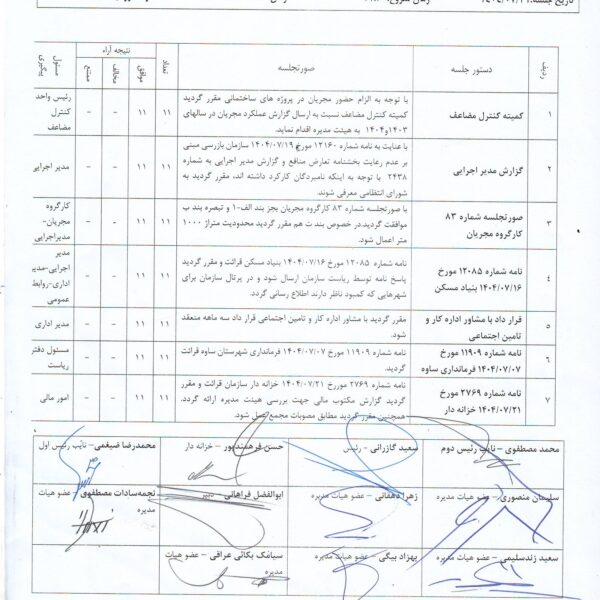 تاریخ جلسه:
زمان شروع:
ردیف
دستور جلسه
صورتجلسه
تعداد
نتیجه آراء
موافق
مخالف
ممتنع
مسئول پیگیری
۱
کمیته کنترل مضاعف
با توجه به الزام حضور مجریان در پروژه های ساختمانی مقرر گردید
کمیته کنترل مضاعف نسبت به ارسال گزارش عملکرد مجریان در سالهای
۱۴۰۳و۱۴۰۴ به هیئت مدیره اقدام نماید.
۱۱
۱۱
–
–
رئیس واحد
کنترل
مضاعف
۲
گزارش مدیر اجرایی
با عنایت به نامه شماره ۱۲۱۶۰ مورخ ۱۴۰۴/۰۷/۱۹ سازمان بازرسی مبنی
بر عدم رعایت بخشنامه تعارض منافع و گزارش مدیر اجرایی به شماره
۲۴۳۸ با توجه به اینکه نامبردگان کارکرد داشته اند، مقرر گردید به
شورای انتظامی معرفی شوند.
۱۱
۱۱
–
–
مدیر اجرایی
۳
صورتجلسه شماره ۸۳
کارگروه مجریان
با صورتجلسه شماره ۸۳ کارگروه مجریان بجز بند الف-۱ و تبصره بند ب
موافقت گردید.در خصوص بند ت هم مقرر گردید محدودیت متراژ ۱۰۰۰
متر اعمال شود.
۱۱
۱۱
–
–
کارگروه
مجریان-
مدیراجرایی
۴
نامه شماره ۱۲۰۸۵ مورخ
۱۴۰۴/۰۷/۱۶ بنیاد مسکن
نامه شماره ۱۲۰۸۵ مورخ ۱۴۰۴/۰۷/۱۶ بنیاد مسکن قرائت و مقرر گردید
پاسخ نامه توسط ریاست سازمان ارسال شود و در پرتال سازمان برای
شهرهایی که کمبود ناظر دارند اطلاع رسانی گردد.
۱۱
۱۱
–
–
مدیر
اجرایی-مدیر
اداری-روابط
عمومی
۵
قرار داد با مشاور اداره کار و
تامین اجتماعی
مقرر گردید با مشاور اداره کار و تامین اجتماعی قرار داد سه ماهه منعقد
شود.
۱۱
۱۱
–
–
مدیر اداری
۶
نامه شماره ۱۱۹۰۹ مورخ
۱۴۰۴/۰۷/۰۷ فرمانداری ساوه
نامه شماره ۱۱۹۰۹ مورخ ۱۴۰۴/۰۷/۰۷ فرمانداری شهرستان ساوه قرائت
گردید.
۱۱
۱۱
–
–
مسئول دفتر
ریاست
۷
نامه شماره ۲۷۶۹ مورخ
۱۴۰۴/۰۷/۲۱ خزانه دار
نامه شماره ۲۷۶۹ مورخ ۱۴۰۴/۰۷/۲۱ خزانه دار سازمان قرائت و مقرر
گردید گزارش مکتوب مالی جهت بررسی هیئت مدیره ارائه گردد.
همچنین مقرر گردید مطابق مصوبات مجمع عمل شود.
۱۱
۱۱
–
–
امور مالی
محمد مصطفوی – نایب رئیس دوم
سعید گازرانی – رئیس
حسن فرهمندپور – خزانه دار
محمدرضا ضیغمی – نایب رئیس اول
سلیمان منصوری – عضو هیات مدیره
زهرا دهقانی – عضو هیات مدیره
ابوالفضل فراهانی – دبیر
نجمه‌سادات مصطفوی – عضو هیات
مدیره
سعید زندسلیمی – عضو هیات مدیره
بهزاد بیگی – عضو هیات مدیره
سیامک یکائی عراقی – عضو هیات
مدیره